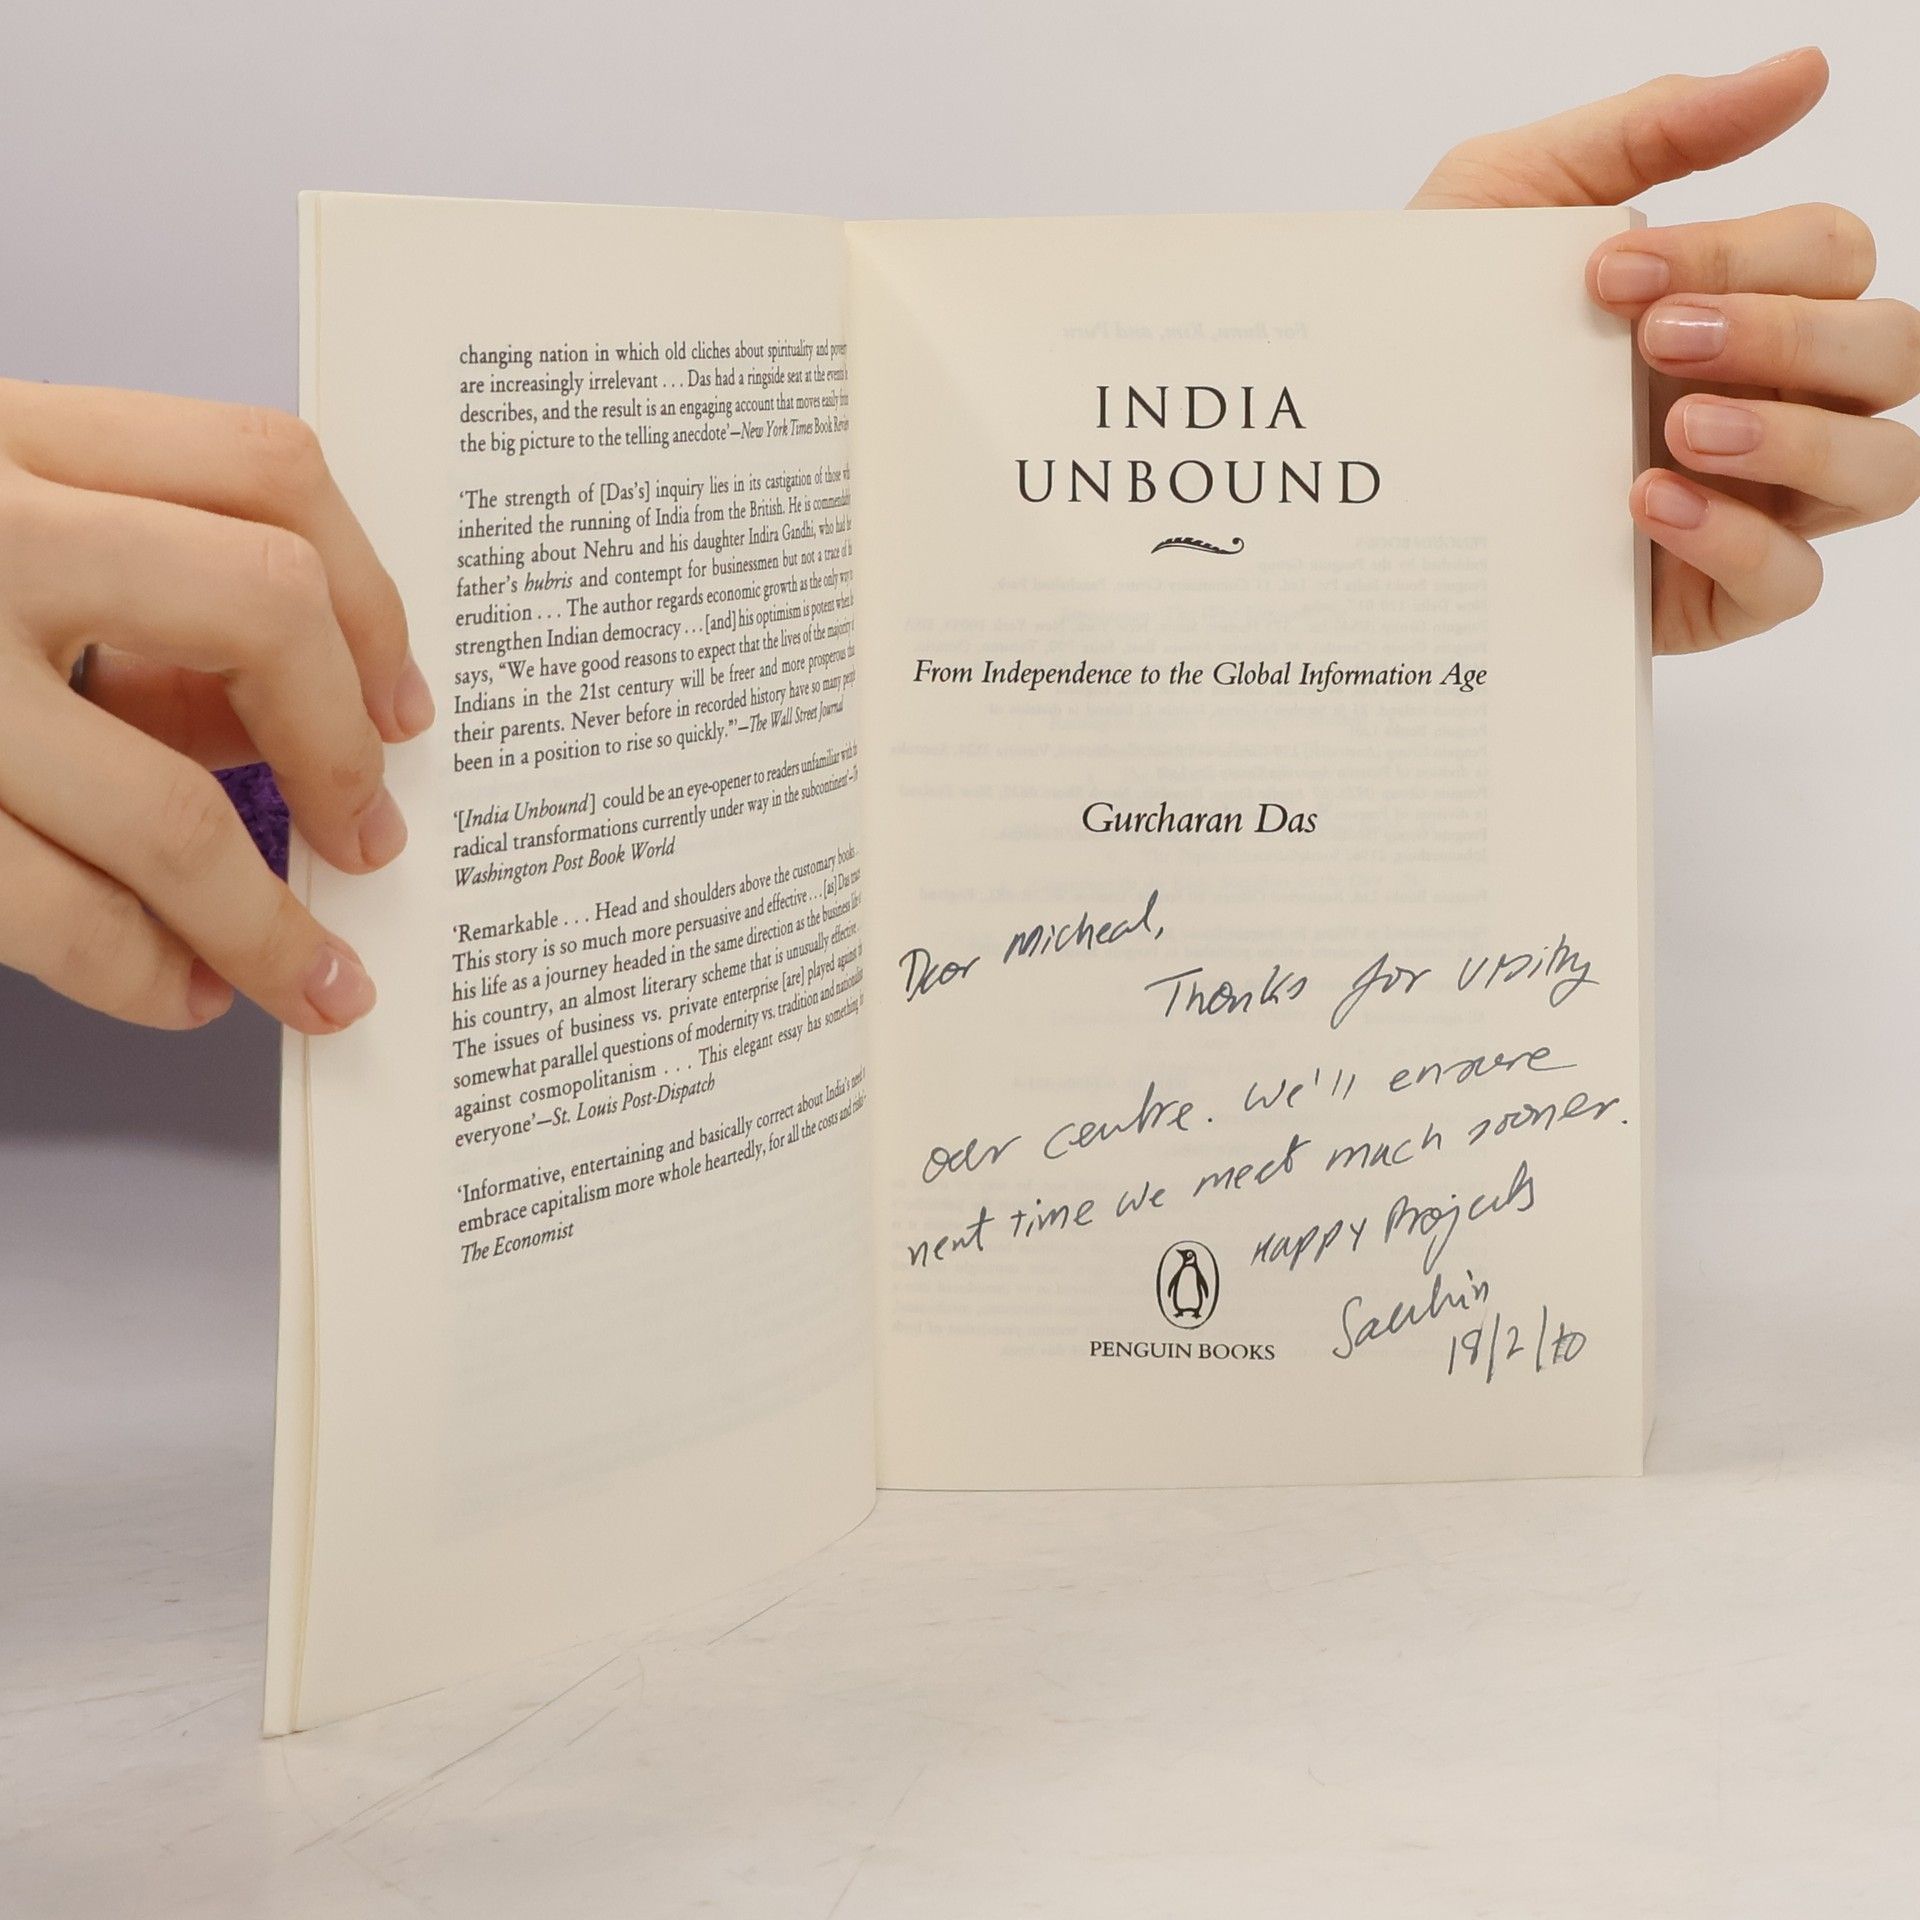 changing nation in which old cliches about spirituality and
are increasingly irrelevant . . . Das had a ringside seat at the events
describes, and the result is an engaging account that moves easily
the big picture to the telling anecdote'—New York Times Book
'The strength of [Das's] inquiry lies in its castigation of those
inherited the running of India from the British. He is
scathing about Nehru and his daughter Indira Gandhi, who had
father's hubris and contempt for businessmen but not a trace of
erudition . . . The author regards economic growth as the only
strengthen Indian democracy . . . [and] his optimism is potent when
says, "We have good reasons to expect that the lives of the majority
Indians in the 21st century will be freer and more prosperous
their parents. Never before in recorded history have so many
been in a position to rise so quickly."'—The Wall Street Journal
'[India Unbound] could be an eye-opener to readers unfamiliar with
radical transformations currently under way in the subcontinent'—
Washington Post Book World
'Remarkable . . . Head and shoulders above the customary books . .
This story is so much more persuasive and effective . . . [as] Das
his life as a journey headed in the same direction as the business life
his country, an almost literary scheme that is unusually effective .
The issues of business vs. private enterprise [are] played against
somewhat parallel questions of modernity vs. tradition and
against cosmopolitanism . . . . This elegant essay has something
everyone'—St. Louis Post-Dispatch
'Informative, entertaining and basically correct about India's need
embrace capitalism more whole heartedly, for all the costs and
The Economist
INDIA
UNBOUND
From Independence to the Global Information Age
Gurcharan Das
Dear Micheal,
Thanks for visiting
our centre. We'll ensure
next time we meet much sooner.
Happy Projects
Sachin
18/2/10
PENGUIN BOOKS